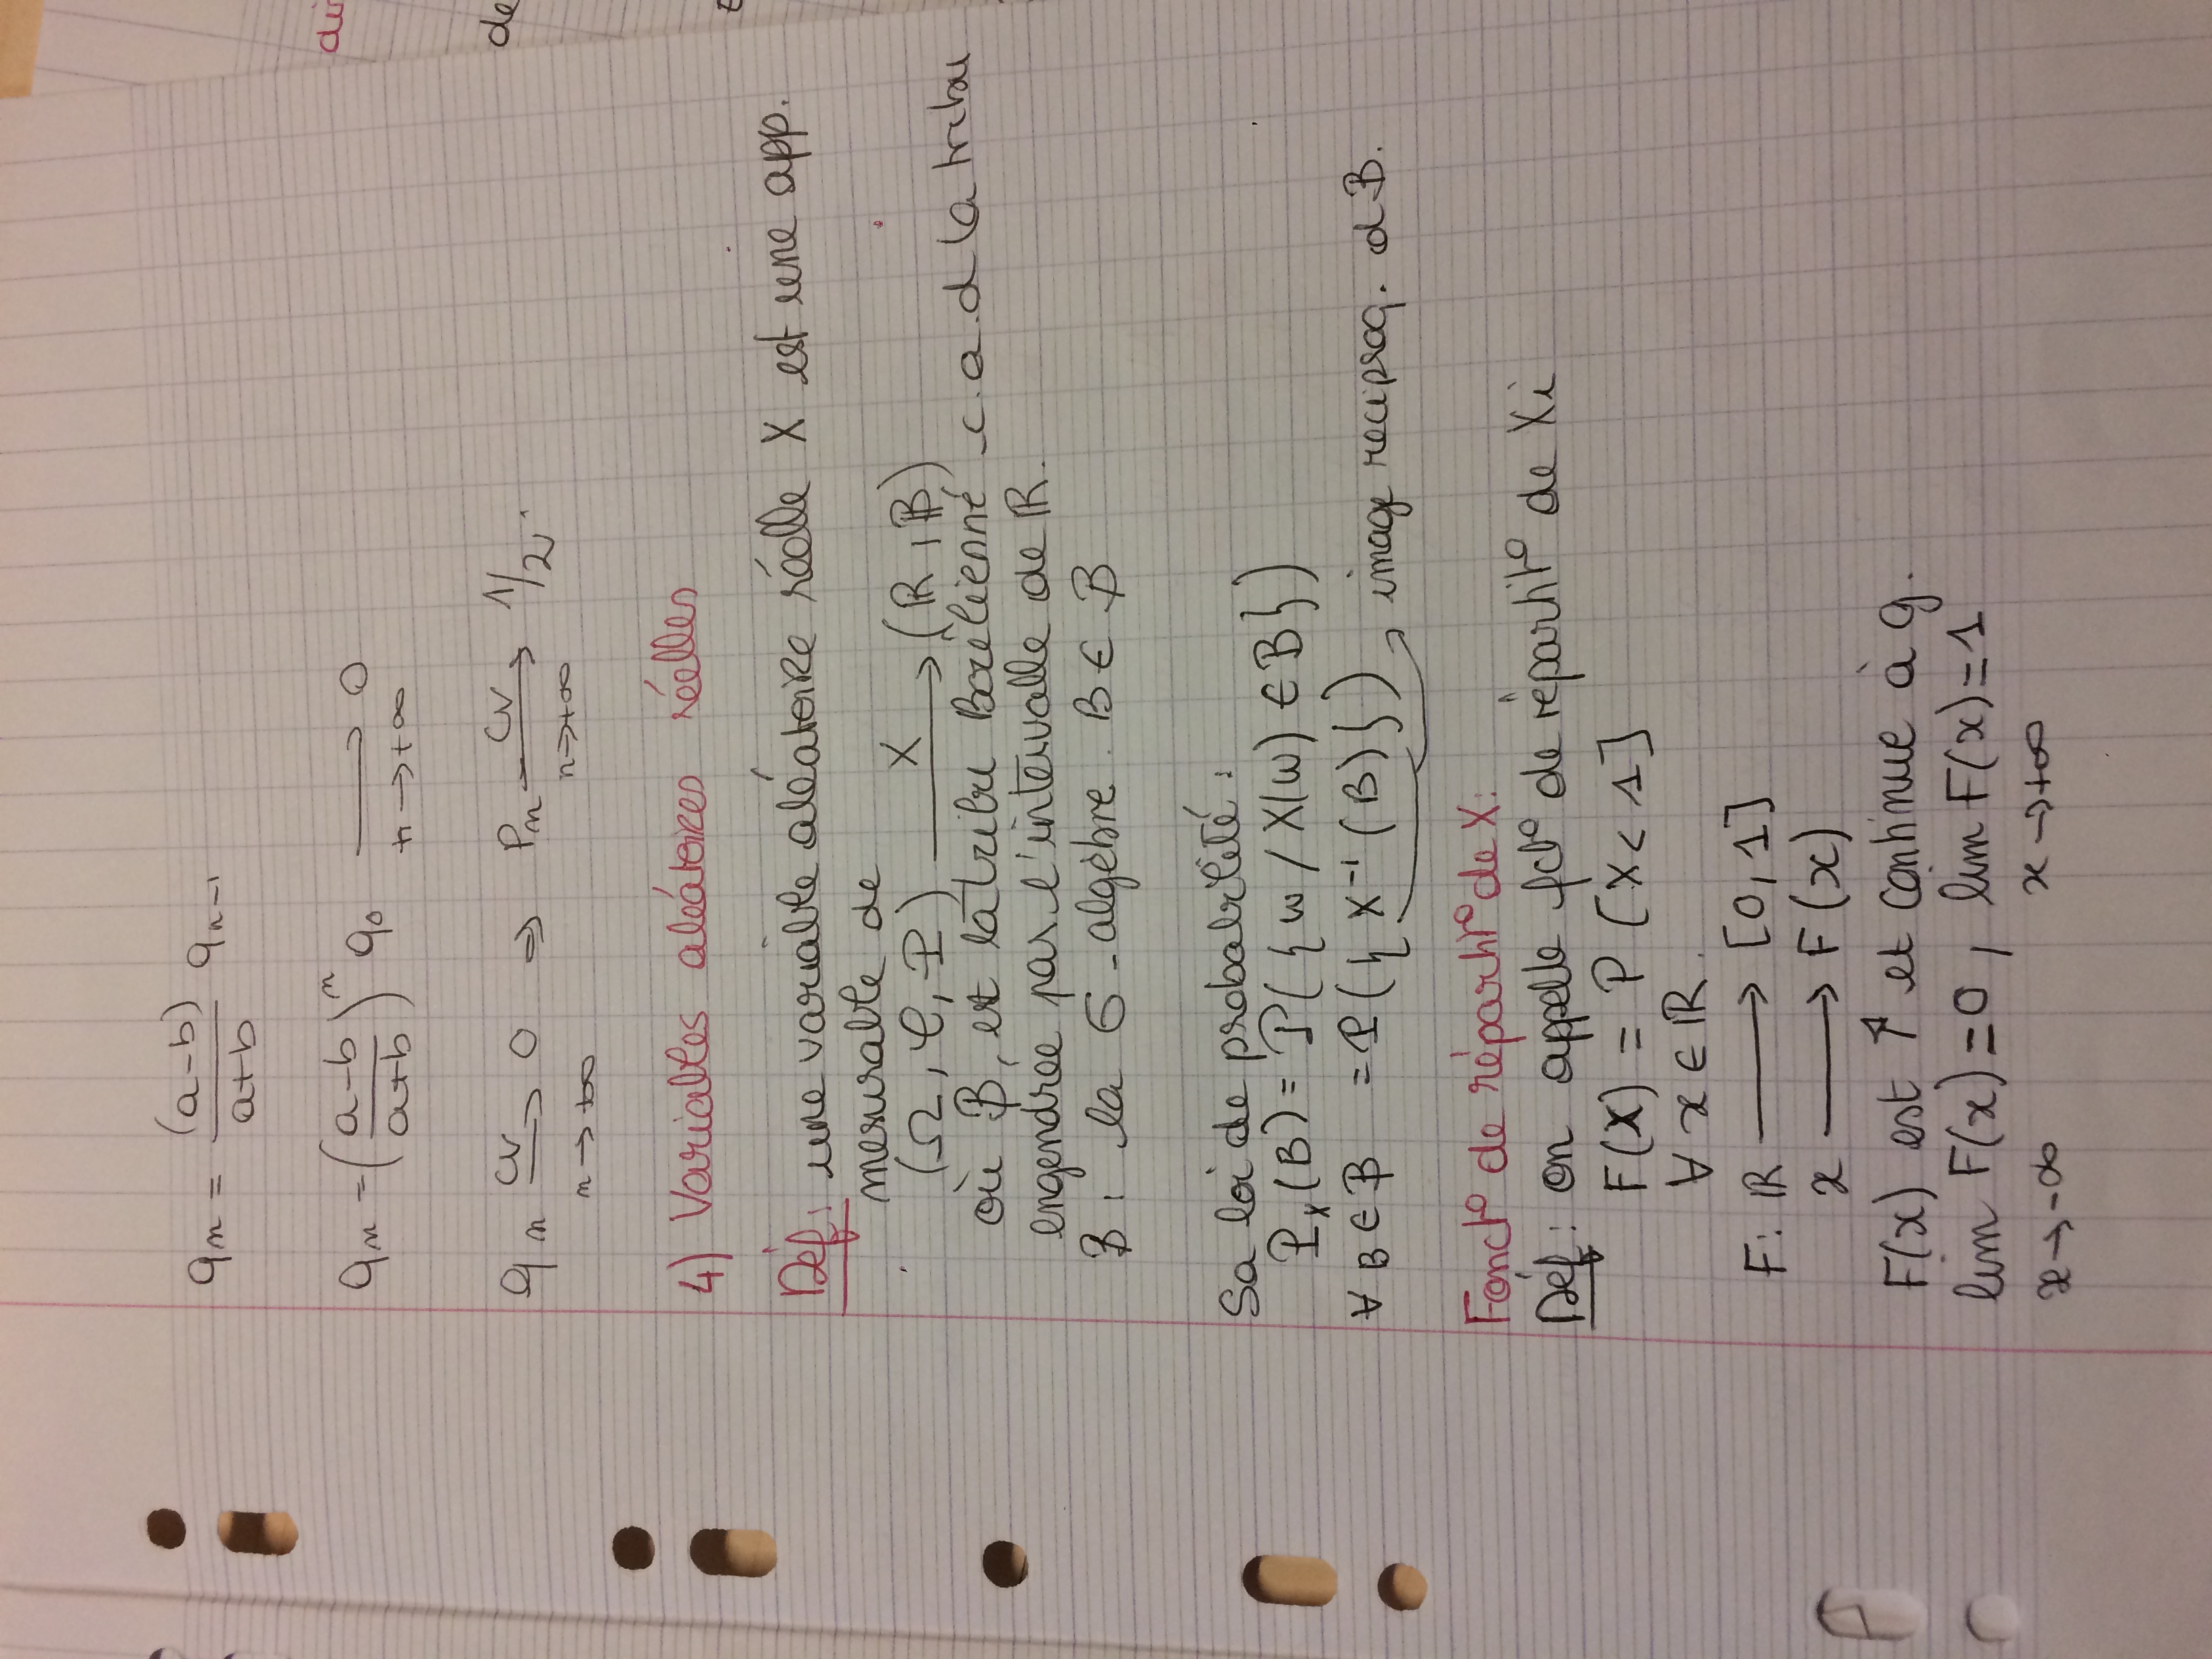 qn = (a-b)/(a+b) qn-1
qn = ((a-b)/(a+b))^n q0 → 0
n → +∞
qn cv→ 0 ⇒ Pn cv→ 1/2.
n → +∞ n → +∞
4) Variables aléatoires réelles
Déf: une variable aléatoire réelle X est une app.
mesurable de
(Ω, C, P) X→ (ℝ, B)
où B, est la tribu Borélienné c.a.d la tribu
engendrée par l'intervalle de ℝ.
B: la σ-algèbre. B ∈ B
Sa loi de probabilité:
Px(B) = P({ω / X(ω) ∈ B})
∀ B ∈ B = P({X⁻¹(B)}), image reciproq. d B.
Fonct° de répartit° de X:
Déf: on appelle fct° de répartit° de Xi
F(X) = P[X < 1]
∀ x ∈ ℝ.
F: ℝ → [0,1]
x → F(x)
F(x) est ↑ et continue à g.
lim F(x) = 0, lim F(x) = 1
x → -∞ x → +∞
di
de